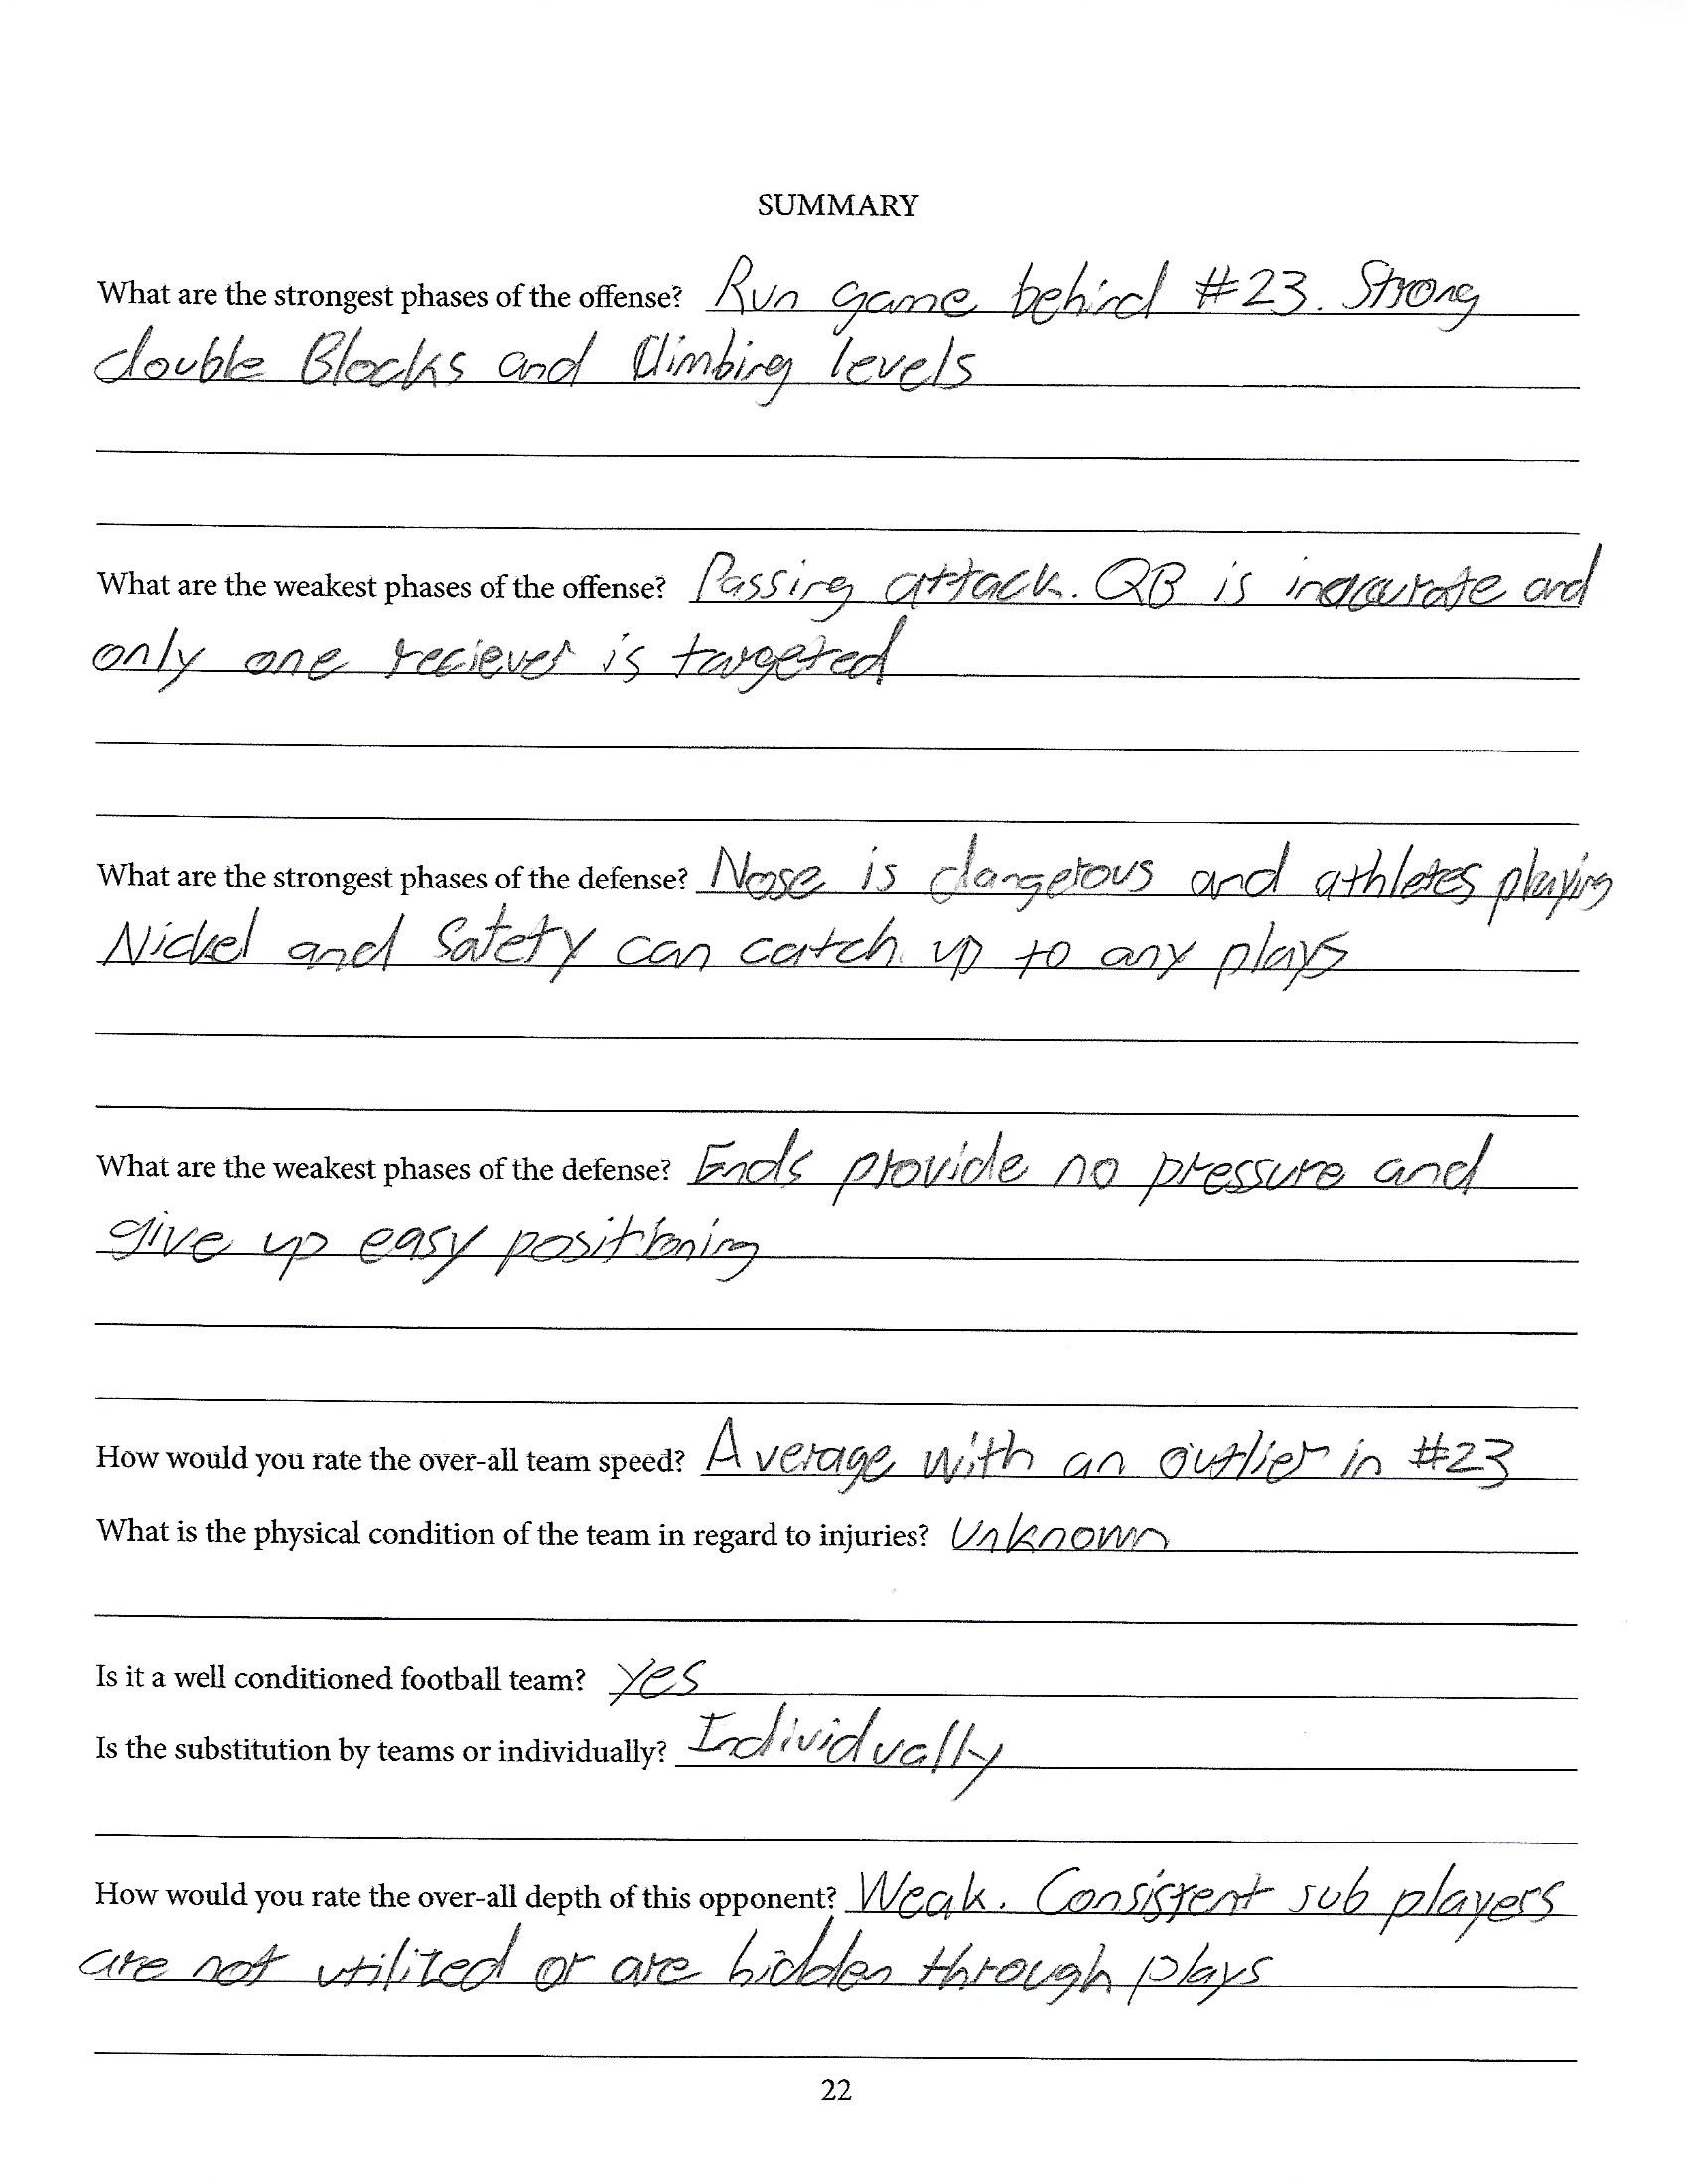 SUMMARY
What are the strongest phases of the offense? Run game behind #23. Strong
double Blocks and Climbing levels
What are the weakest phases of the offense? Passing attack. QB is inaccurate and
only one reciever is targeted
What are the strongest phases of the defense? Nose is dangerous and athletes playing
Nickel and Safety can catch up to any plays
What are the weakest phases of the defense? Ends provide no pressure and
give up easy positioning
How would you rate the over-all team speed? Average with an outlier in #23
What is the physical condition of the team in regard to injuries? Unknown
Is it a well conditioned football team? yes
Is the substitution by teams or individually? Individually
How would you rate the over-all depth of this opponent? Weak. Consistent sub players
are not utilized or are hidden through plays
22